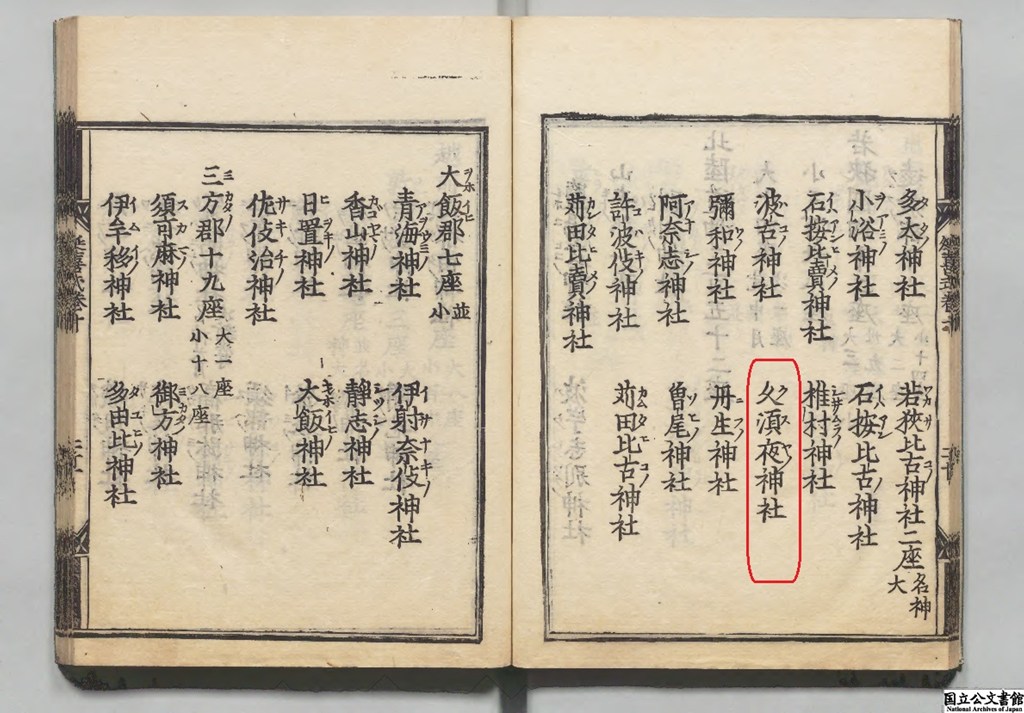 多太神社 若狹比古神社二座 名神大
小浴神社 石按比古神社
石按比賣神社 椎村神社
波古神社 久須夜神社
彌和神社 丹生神社
阿奈志神社 曽尾神社
許波伎神社 苅田比古神社
苅田比賣神社
大飯郡七座 並小
青海神社 伊射奈伎神社
香山神社 静志神社
日置神社 大飯神社
佐伎治神社
三方郡十九座 大一座 小十八座
須可麻神社 御方神社
伊牟移神社 多由比神社
国立公文書館
National Archives of Japan